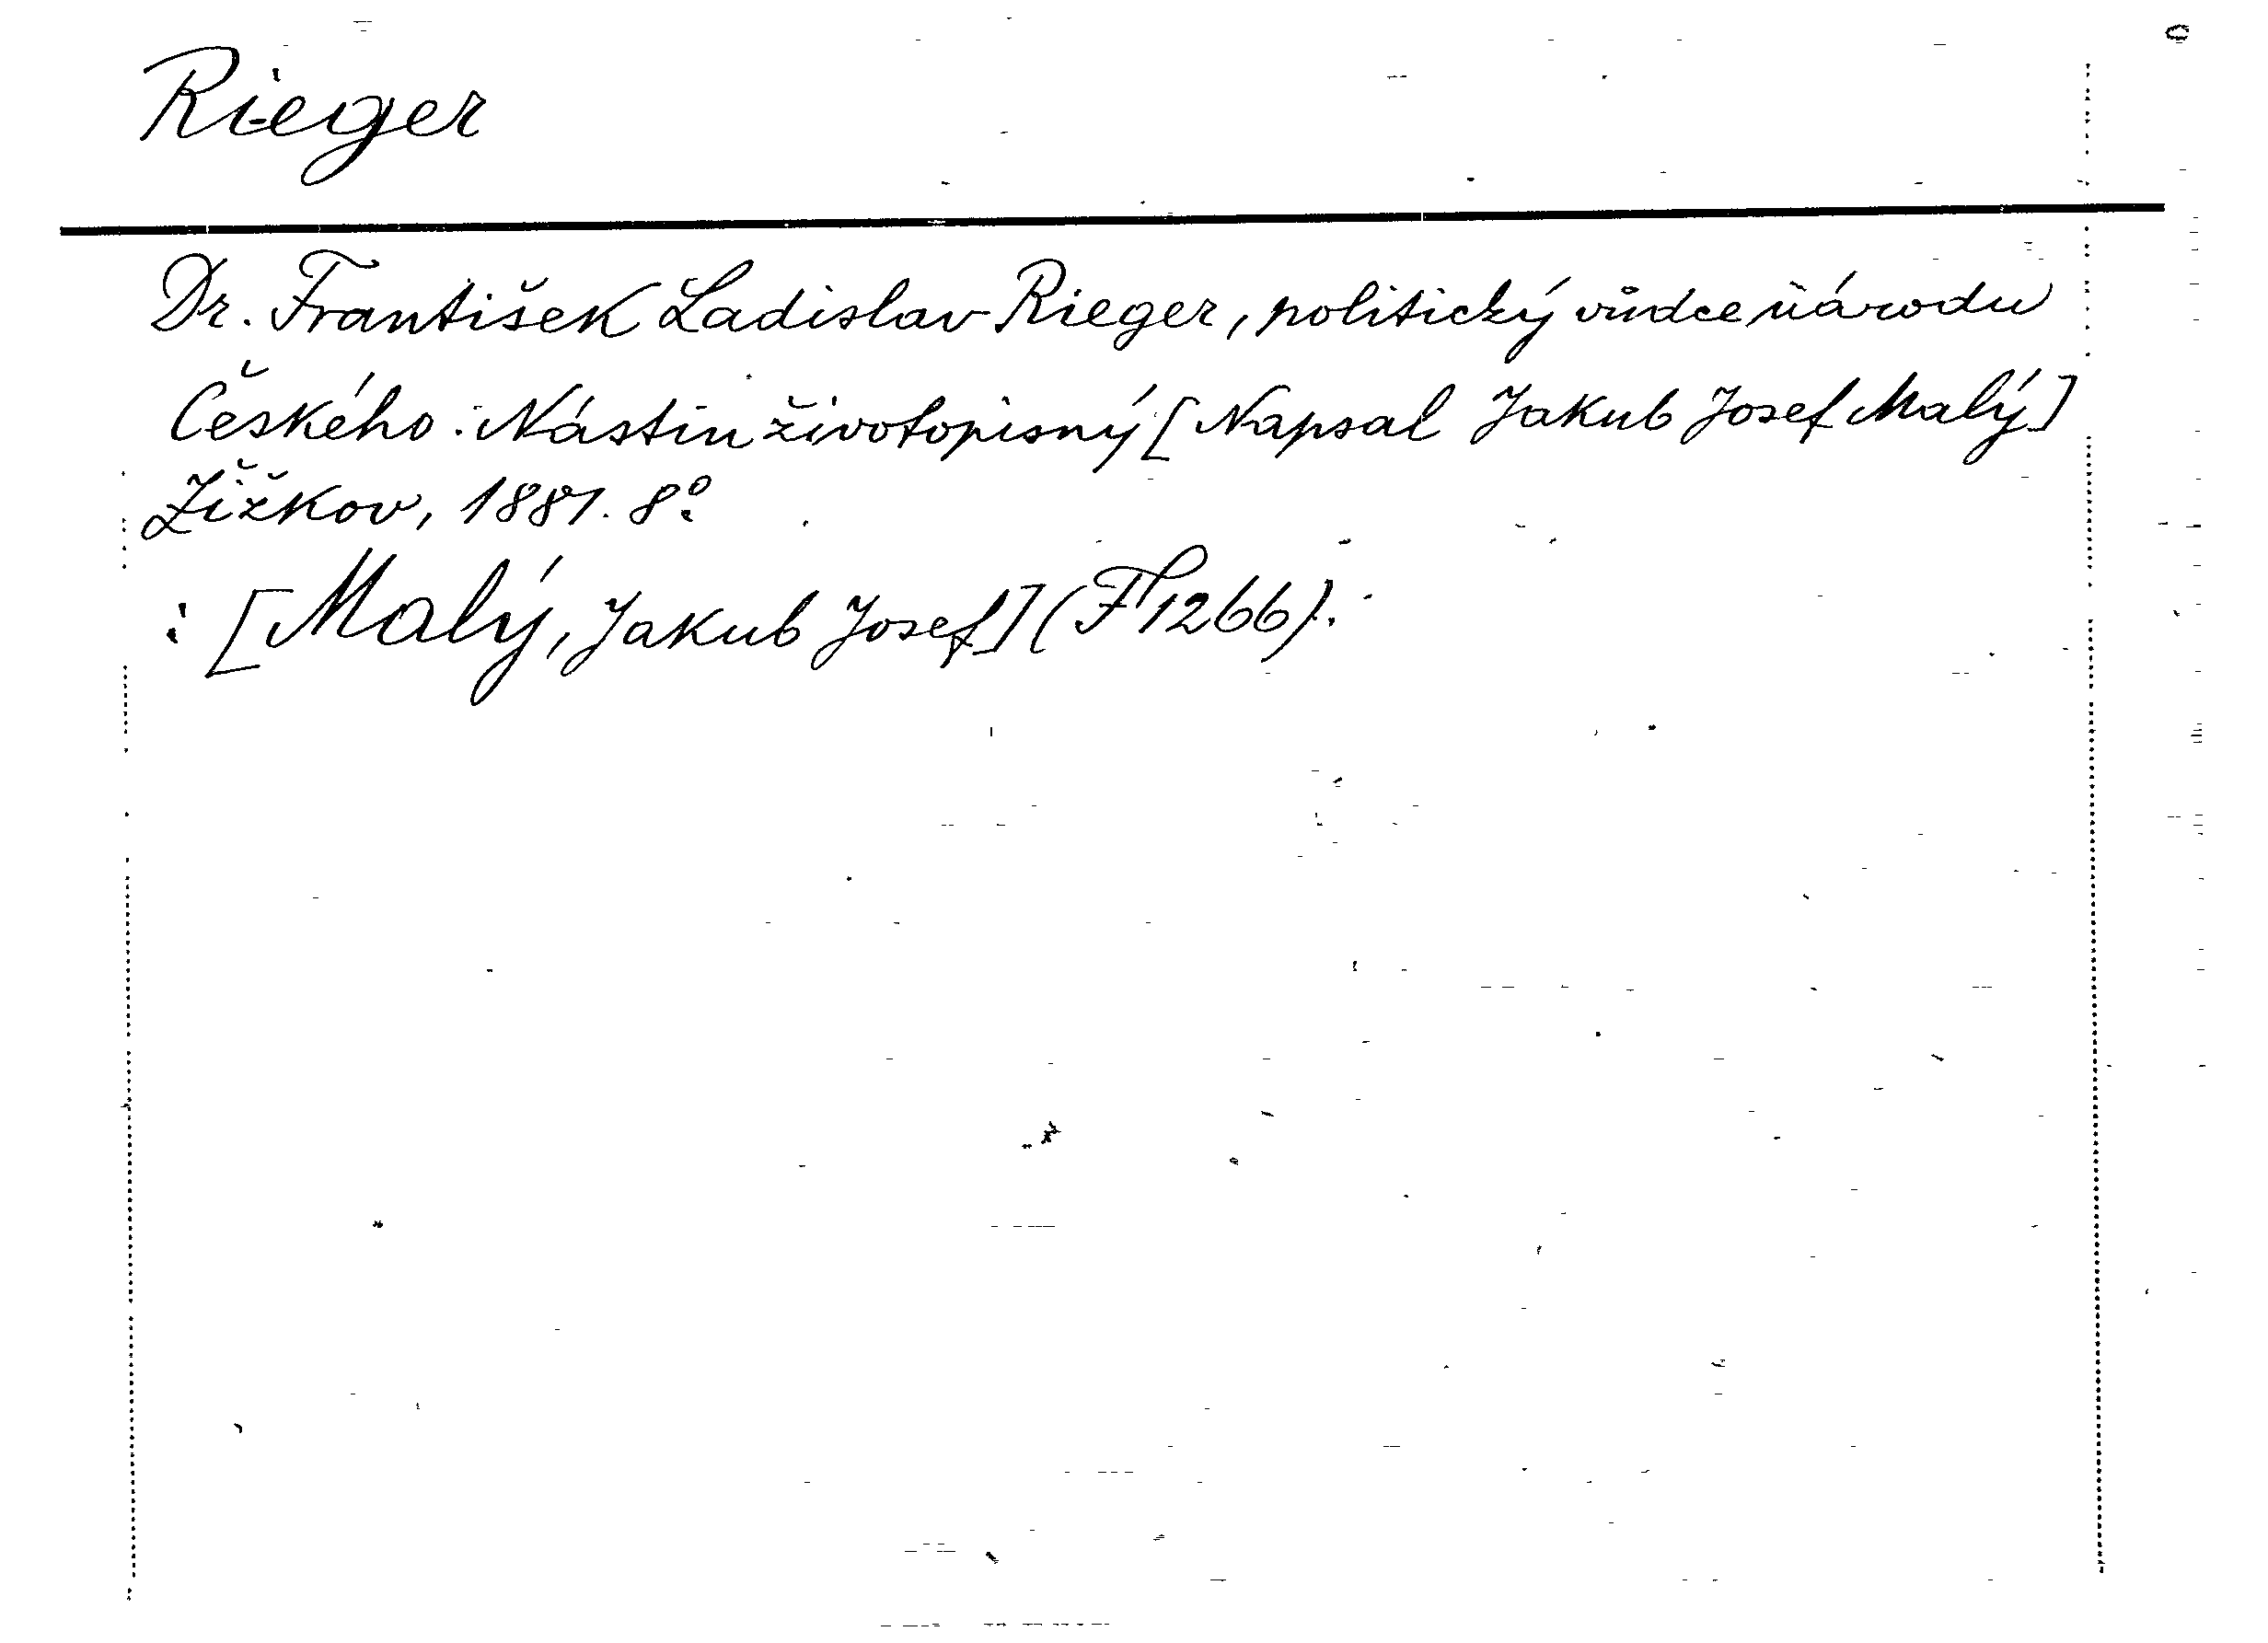 Rieger
Dr. František Ladislav Rieger, politický vůdce národu
Českého: Nástin životopisný [Napsal Jakub Josef Malý]
Žižkov, 1881. 8º.
: [Malý, Jakub Josef] (F 1266).